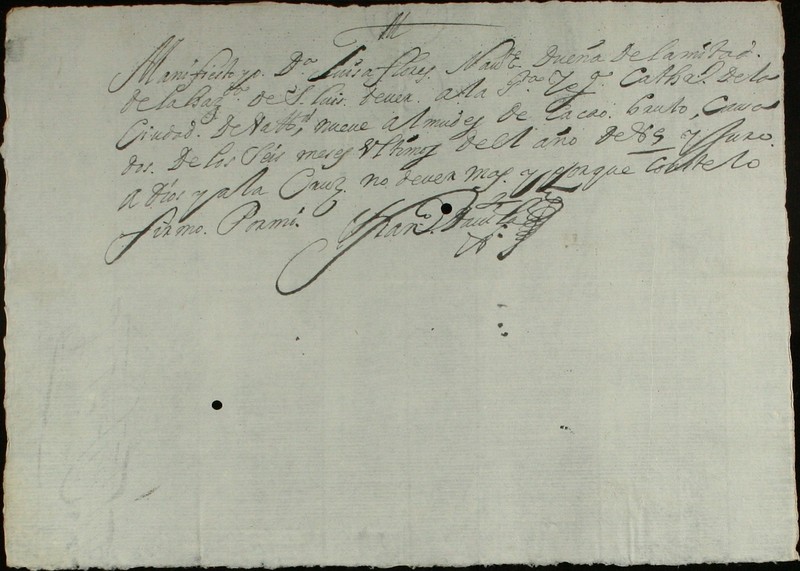 Manifiesto yo. Dª Luisa flores. Dueña de la mitad.
de la Hazª de S. Luis. dever. a la Stª Ygª Cathl. de la
Ciudad. De Vallid, nueve almudes de Cacao. bruto, Causa
dos. De los Seis meses Vltimos del año de 69 y Juro.
A Dios y a la Cruz. no dever mas. y porque Conste lo
firmo. Por mi. Franco.